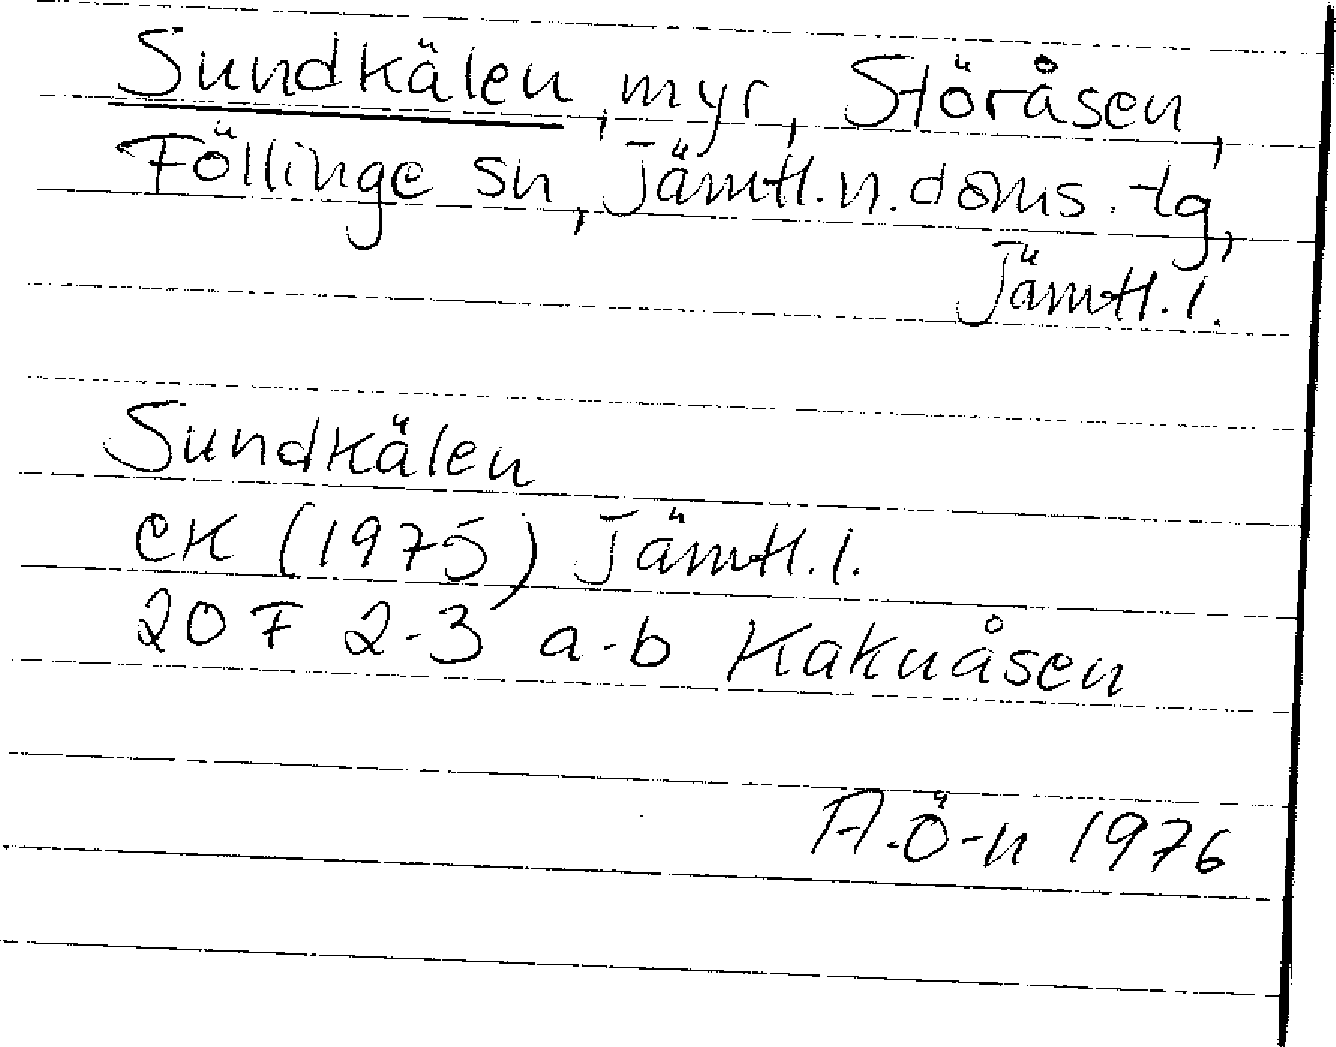 Sundkälen, myr, Störåsen,
Föllinge sn, Jämtl.n.doms.tg,
Jämtl.l.
Sundkälen
EK (1975) Jämtl.l.
20 F 2-3 a-b Kakuåsen
A.Ö-n 1976